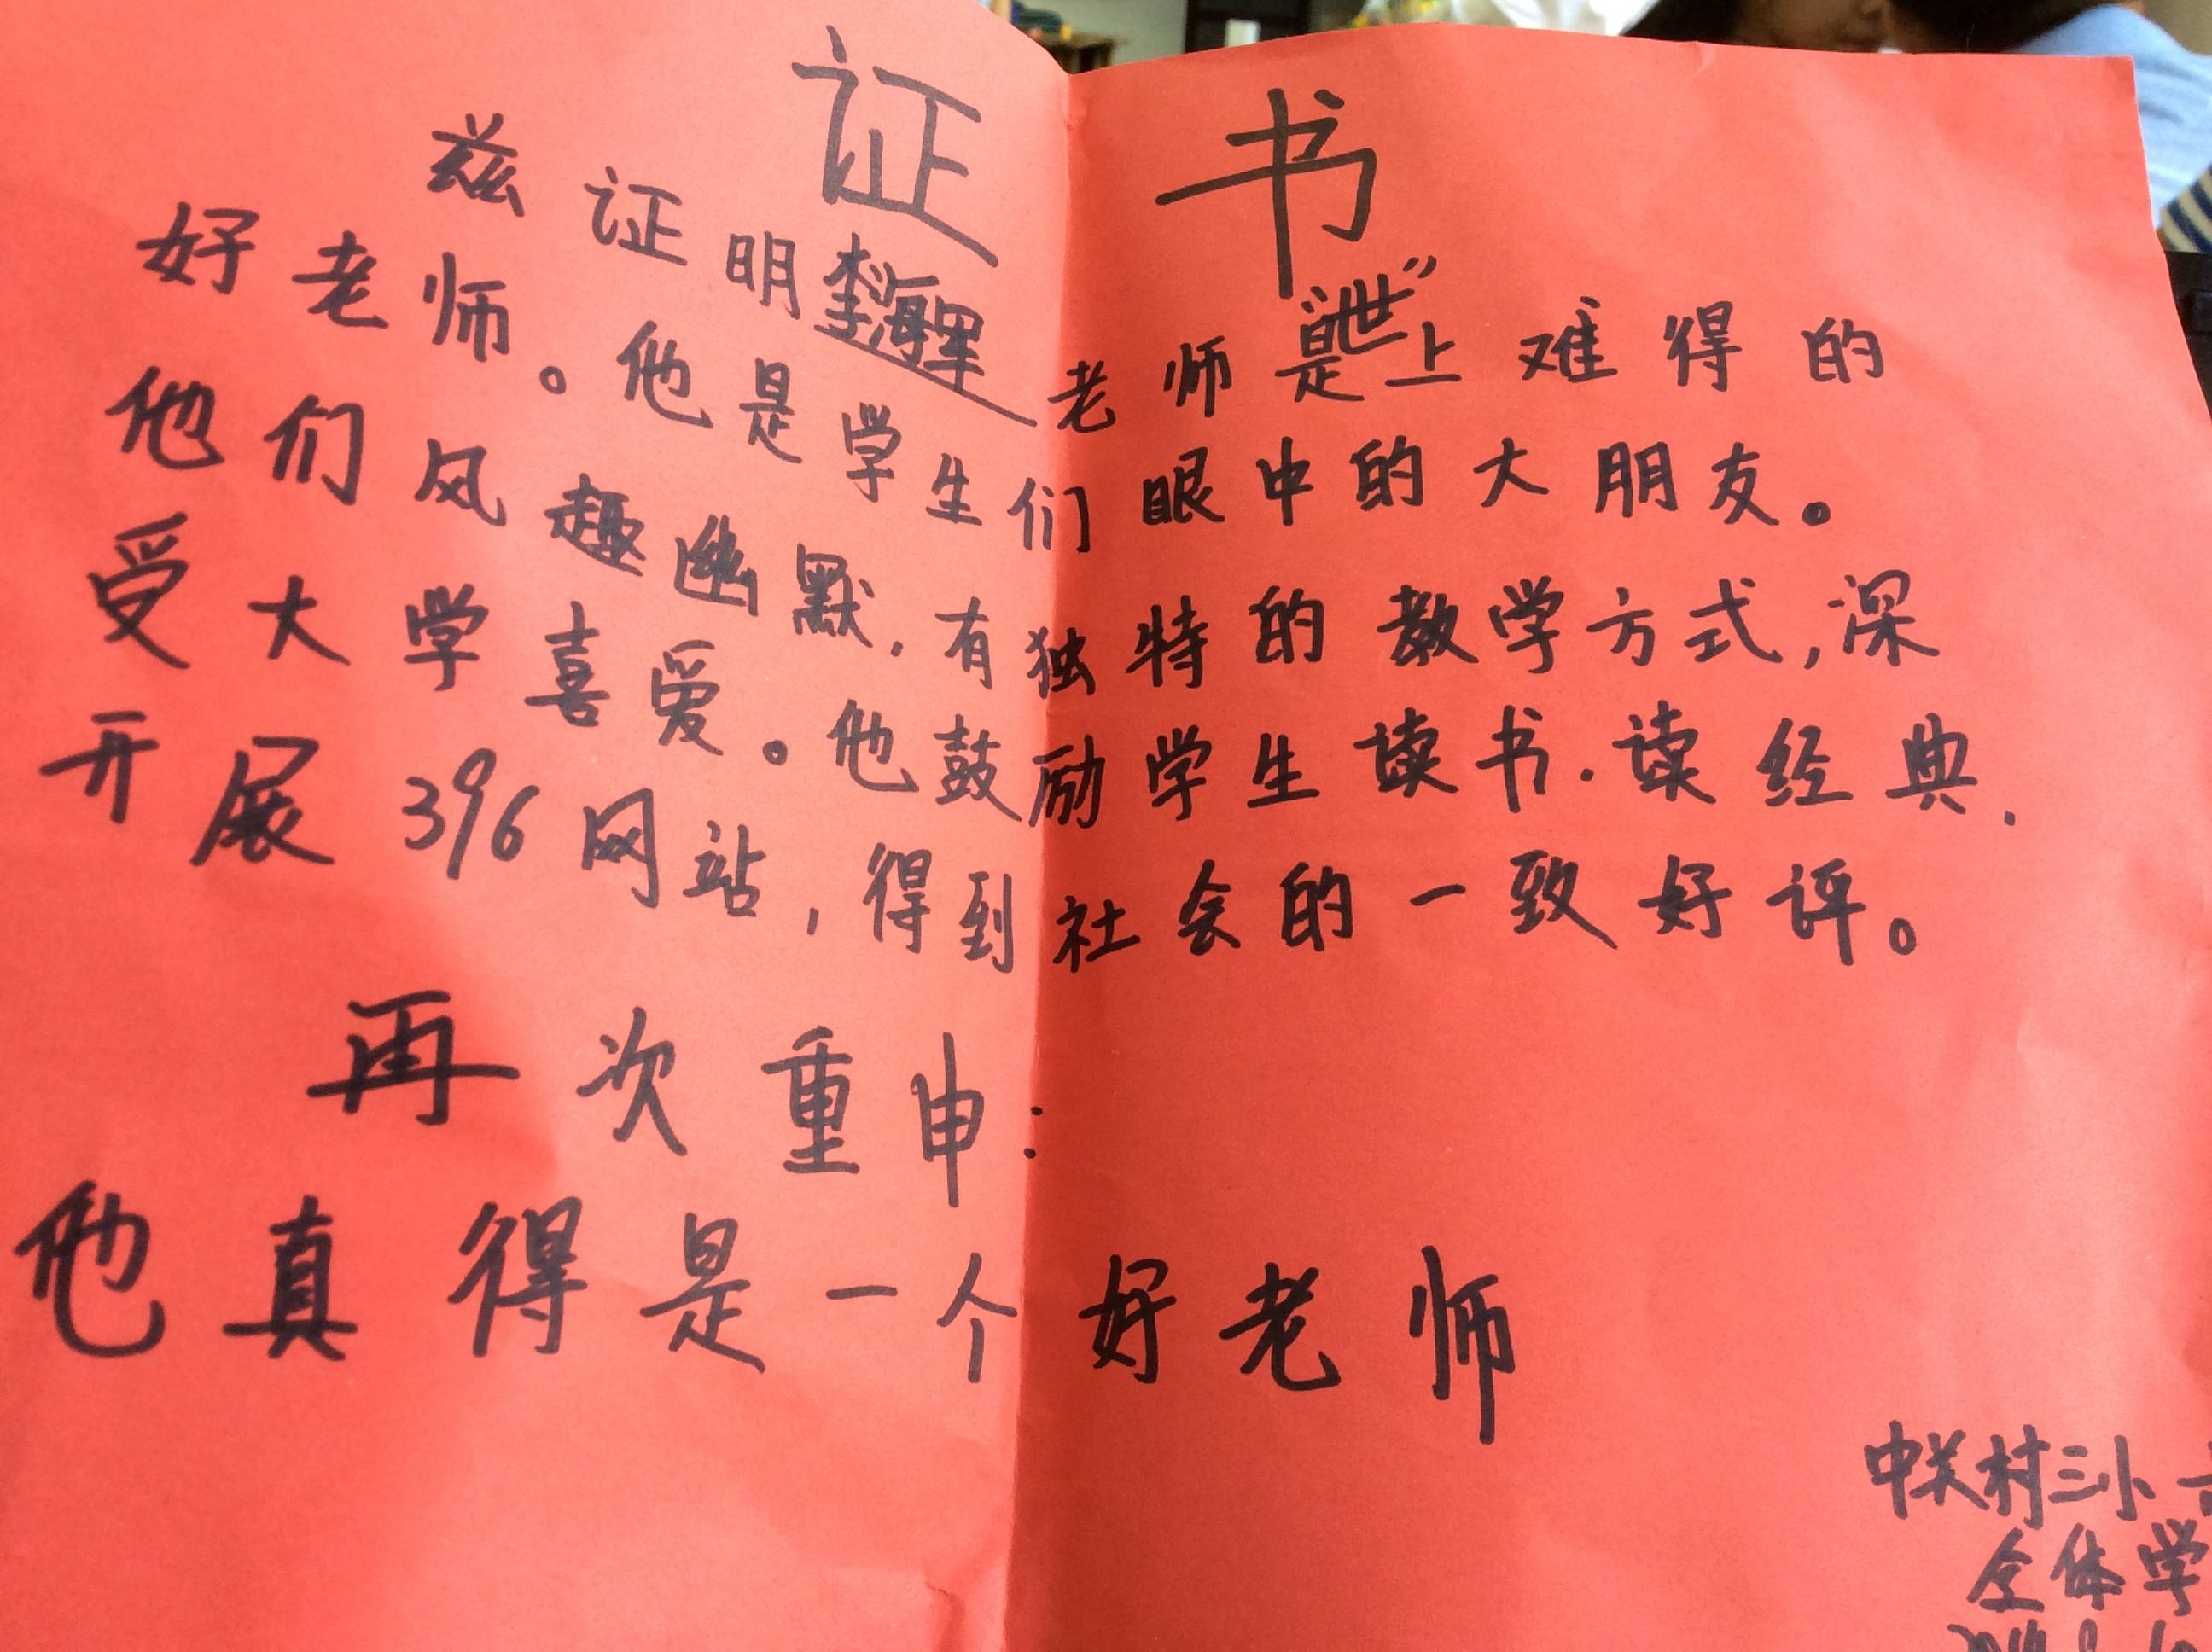 证书
兹证明李海军老师是“世”上难得的
好老师。他是学生们眼中的大朋友。
他们风趣幽默，有独特的教学方式，深
受大学喜爱。他鼓励学生读书.读经典.
开展396网站，得到社会的一致好评。
再次重申：
他真得是一个好老师
中关村三小
全体学